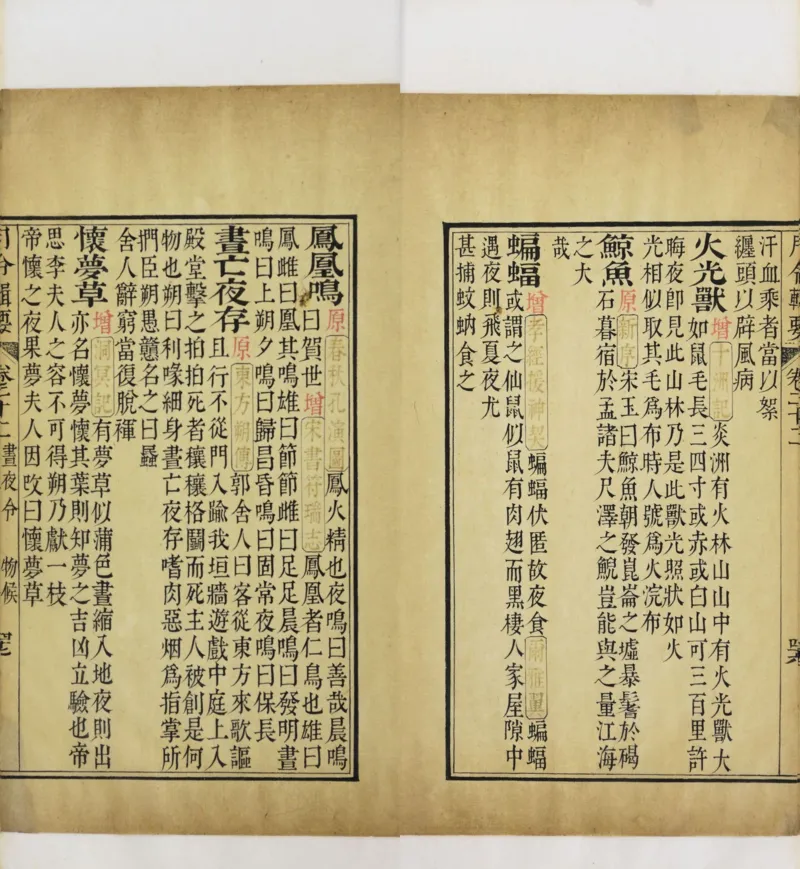 月令輯要 卷二十二
汗血乘者當以絮
纏頭以辟風病
火光獸增十洲記炎洲有火林山山中有火光獸大
如鼠毛長三四寸或赤或白山可三百里許
晦夜卽見此山林乃是此獸光照狀如火
光相似取其毛爲布時人號爲火浣布
鯨魚原新序宋玉曰鯨魚朝發崑崙之墟暴鬐於碣
石暮宿於孟諸夫尺澤之鯢豈能與之量江海
之大
哉
蝙蝠增孝經援神契蝙蝠伏匿故夜食爾雅翼蝙蝠
或謂之仙鼠似鼠有肉翅而黑棲人家屋隙中
遇夜則飛夏夜尤
甚捕蚊蚋食之
鳳凰鳴原春秋孔演圖鳳火精也夜鳴曰善哉晨鳴
曰賀世增宋書符瑞志鳳凰者仁鳥也雄曰
鳳雌曰凰其鳴雄曰節節雌曰足足晨鳴曰發明晝
鳴曰上朔夕鳴曰歸昌昏鳴曰固常夜鳴曰保長
晝亡夜存原東方朔傳郭舍人曰客從東方來歌謳
且行不從門入踰我垣牆遊戲中庭上入
殿堂擊之拍拍死者穰穰格鬭而死主人被創是何
物也朔曰利喙細身晝亡夜存嗜肉惡烟爲指掌所
捫臣朔愚戇名之曰蟁
舍人辭窮當復脫褌
懷夢草增洞冥記有夢草似蒲色晝縮入地夜則出
亦名懷夢懷其葉則知夢之吉凶立驗也帝
思李夫人之容不可得朔乃獻一枝
帝懷之夜果夢夫人因改曰懷夢草
月令輯要 卷二十二 晝夜令 物候